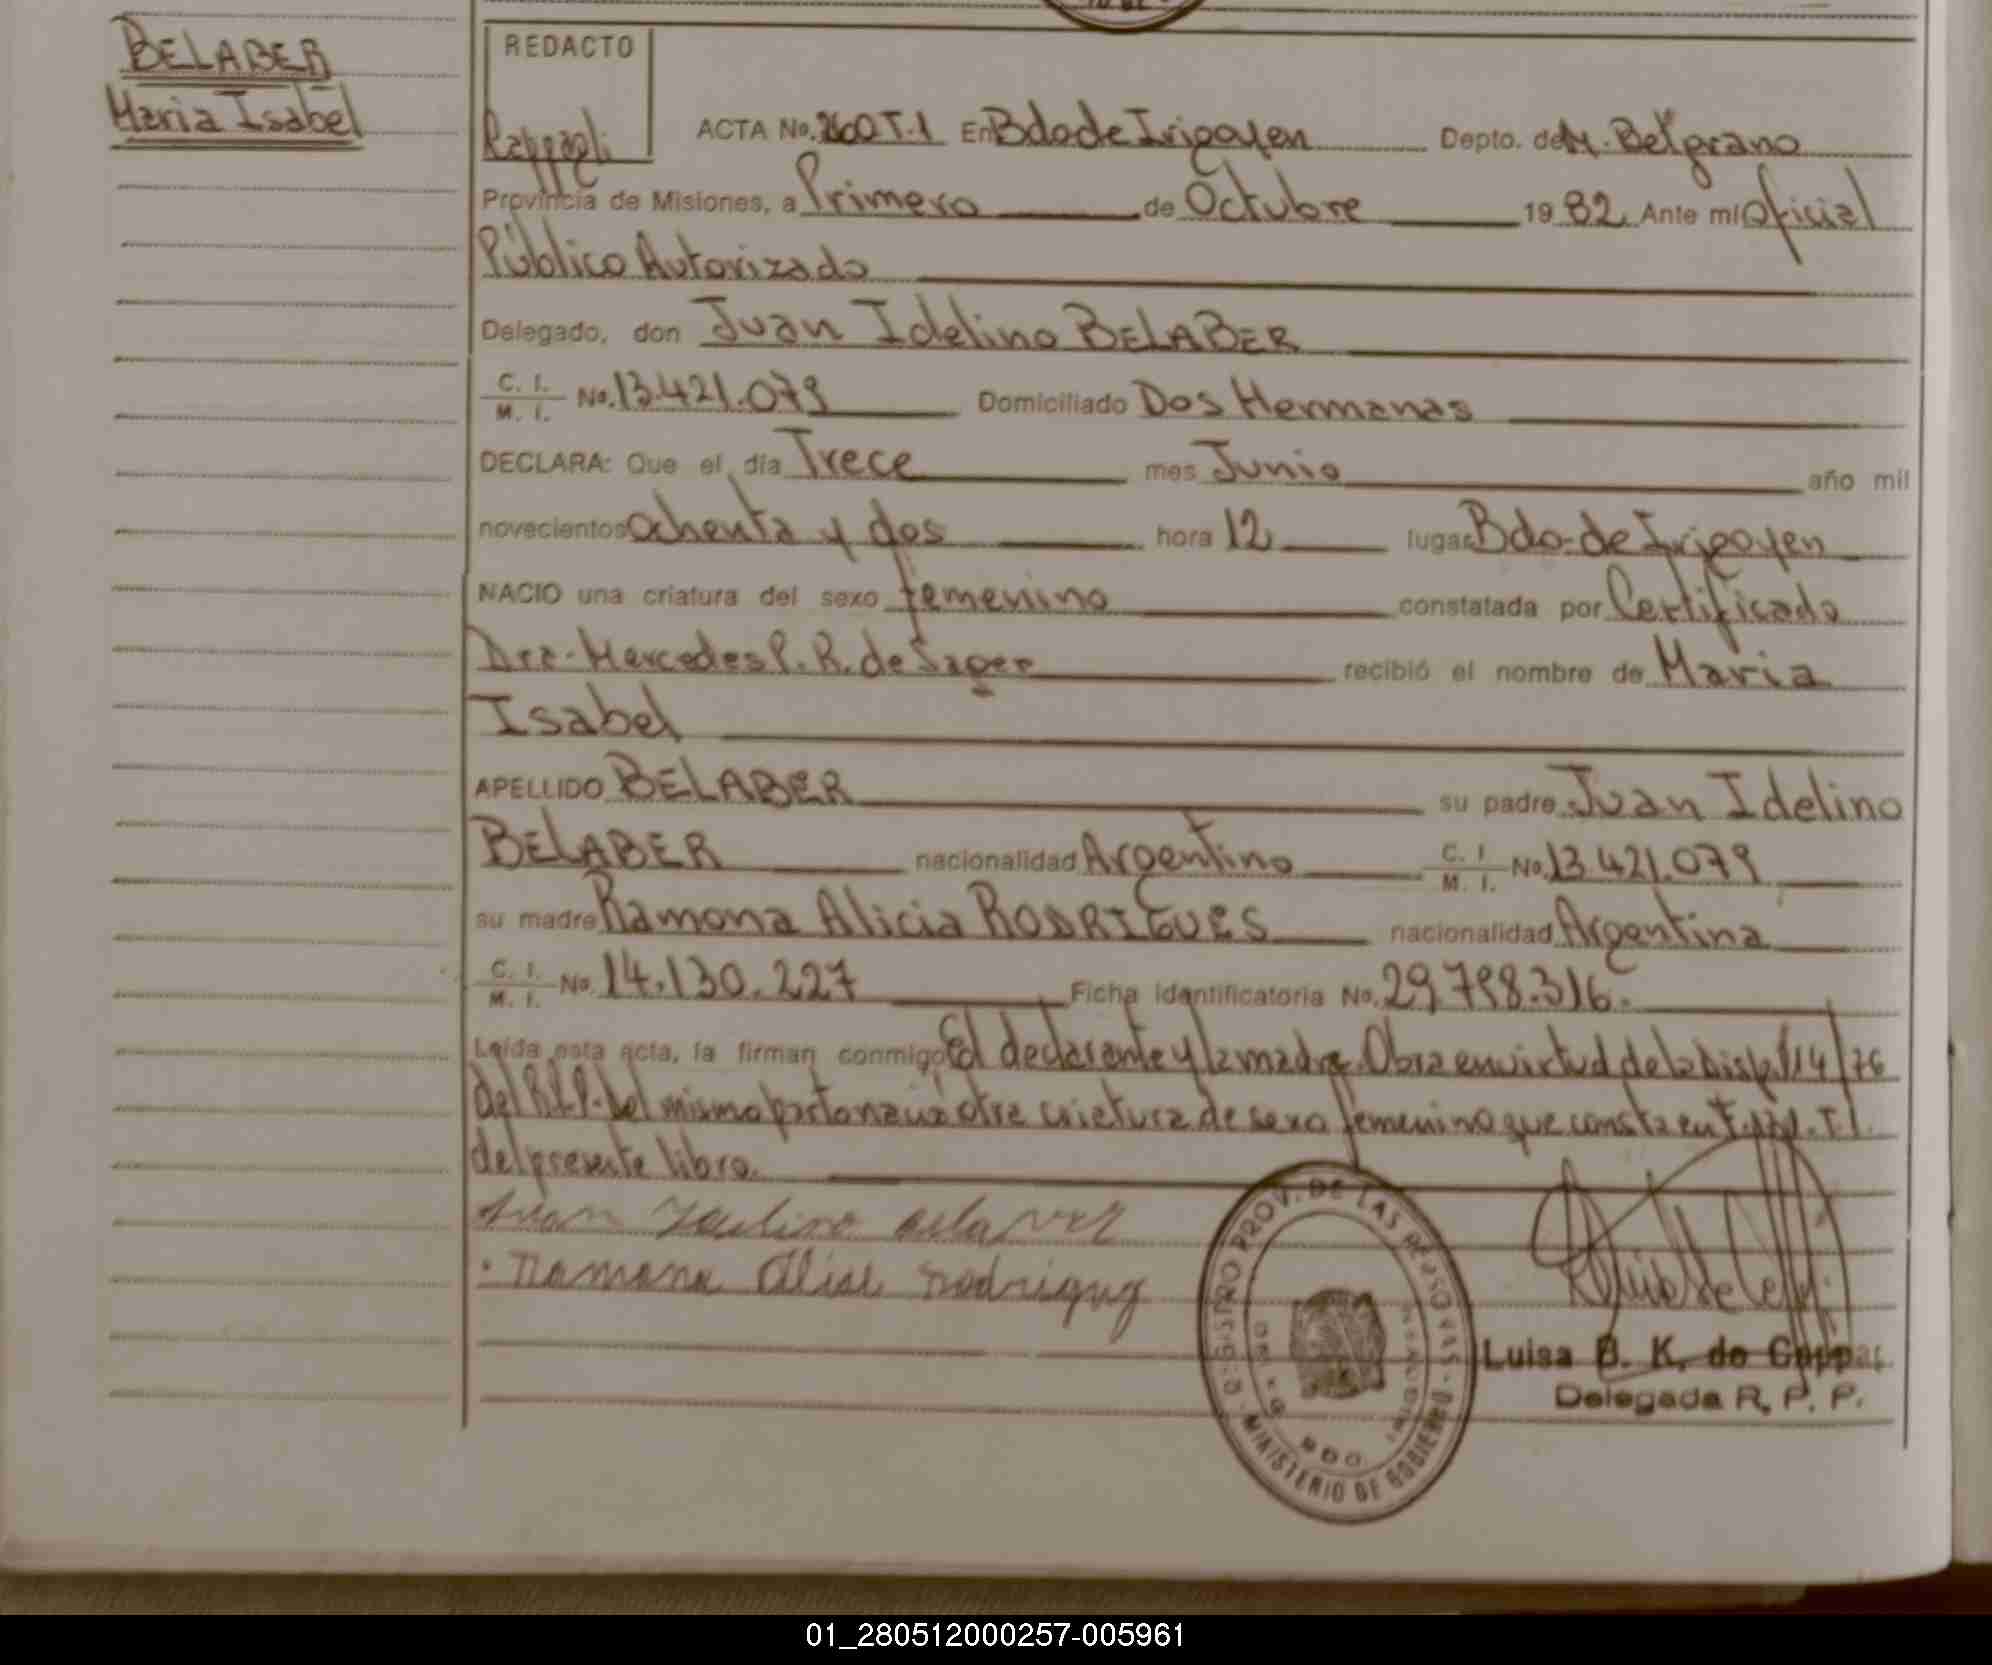 BELABER
Maria Isabel
REDACTO
ACTA No. 260 T.1 En Bdo de Irigoyen Depto. de M. Belgrano
Provincia de Misiones, a Primero de Octubre 19 82 Ante mi Oficial
Público Autorizado
Delegado, don Juan Idelino BELABER
C. I. / M. I. No. 13.421.079 Domiciliado Dos Hermanas
DECLARA: Que el dia Trece mes Junio año mil
novecientos ochenta y dos hora 12 lugar Bdo. de Irigoyen
NACIO una criatura del sexo femenino constatada por Certificado
Dra. Mercedes P. R. de Sager recibió el nombre de Maria
Isabel
APELLIDO BELABER su padre Juan Idelino
BELABER nacionalidad Argentino C. I / M. I. No. 13.421.079
su madre Ramona Alicia RODRIGUES nacionalidad Argentina
C. I. / M. I. No. 14.130.227 Ficha Identificatoria No. 29.798.316.
Leída esta acta, la firman conmigo El declarante y la madre. Obra en virtud de la Disp. 114/76
del R.P.P. Del mismo parto nació otra criatura de sexo femenino que consta en T.1
del presente libro.
Ramona Alise Rodrigug
REGISTRO PROV. DE LAS PERSONAS - MINISTERIO DE GOBIERNO
Luisa B. K. de
Delegada R. P. P.
01_280512000257-005961